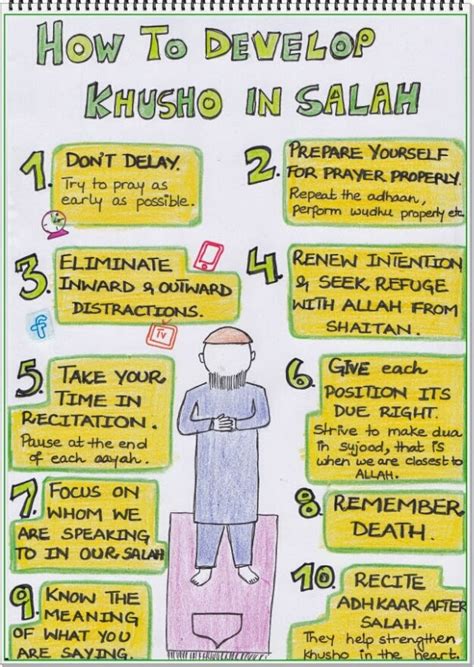 How To DEVELOP
KHUSHO IN SALAH
1. DON'T DELAY.
Try to pray as
early as possible.
2. PREPARE YOURSELF
FOR PRAYER PROPERLY.
Repeat the adhaan,
perform wudhu properly etc.
3. ELIMINATE
INWARD & OUTWARD
DISTRACTIONS.
f
TV
4. RENEW INTENTION
& SEEK REFUGE
WITH ALLAH FROM
SHAITAN.
5. TAKE YOUR
TIME IN
RECITATION.
Pause at the end
of each aayah.
6. GIVE each
POSITION ITS
DUE RIGHT.
Strive to make dua
in sujood, that is
when we are closest to
ALLAH.
7. FOCUS ON
WHOM WE
ARE SPEAKING
TO IN OUR SALAH
8. REMEMBER
DEATH.
9. KNOW THE
MEANING
OF WHAT YOU
ARE SAYING.
10. RECITE
ADHKAAR AFTER
SALAH.
They help strengthen
khusho in the heart.